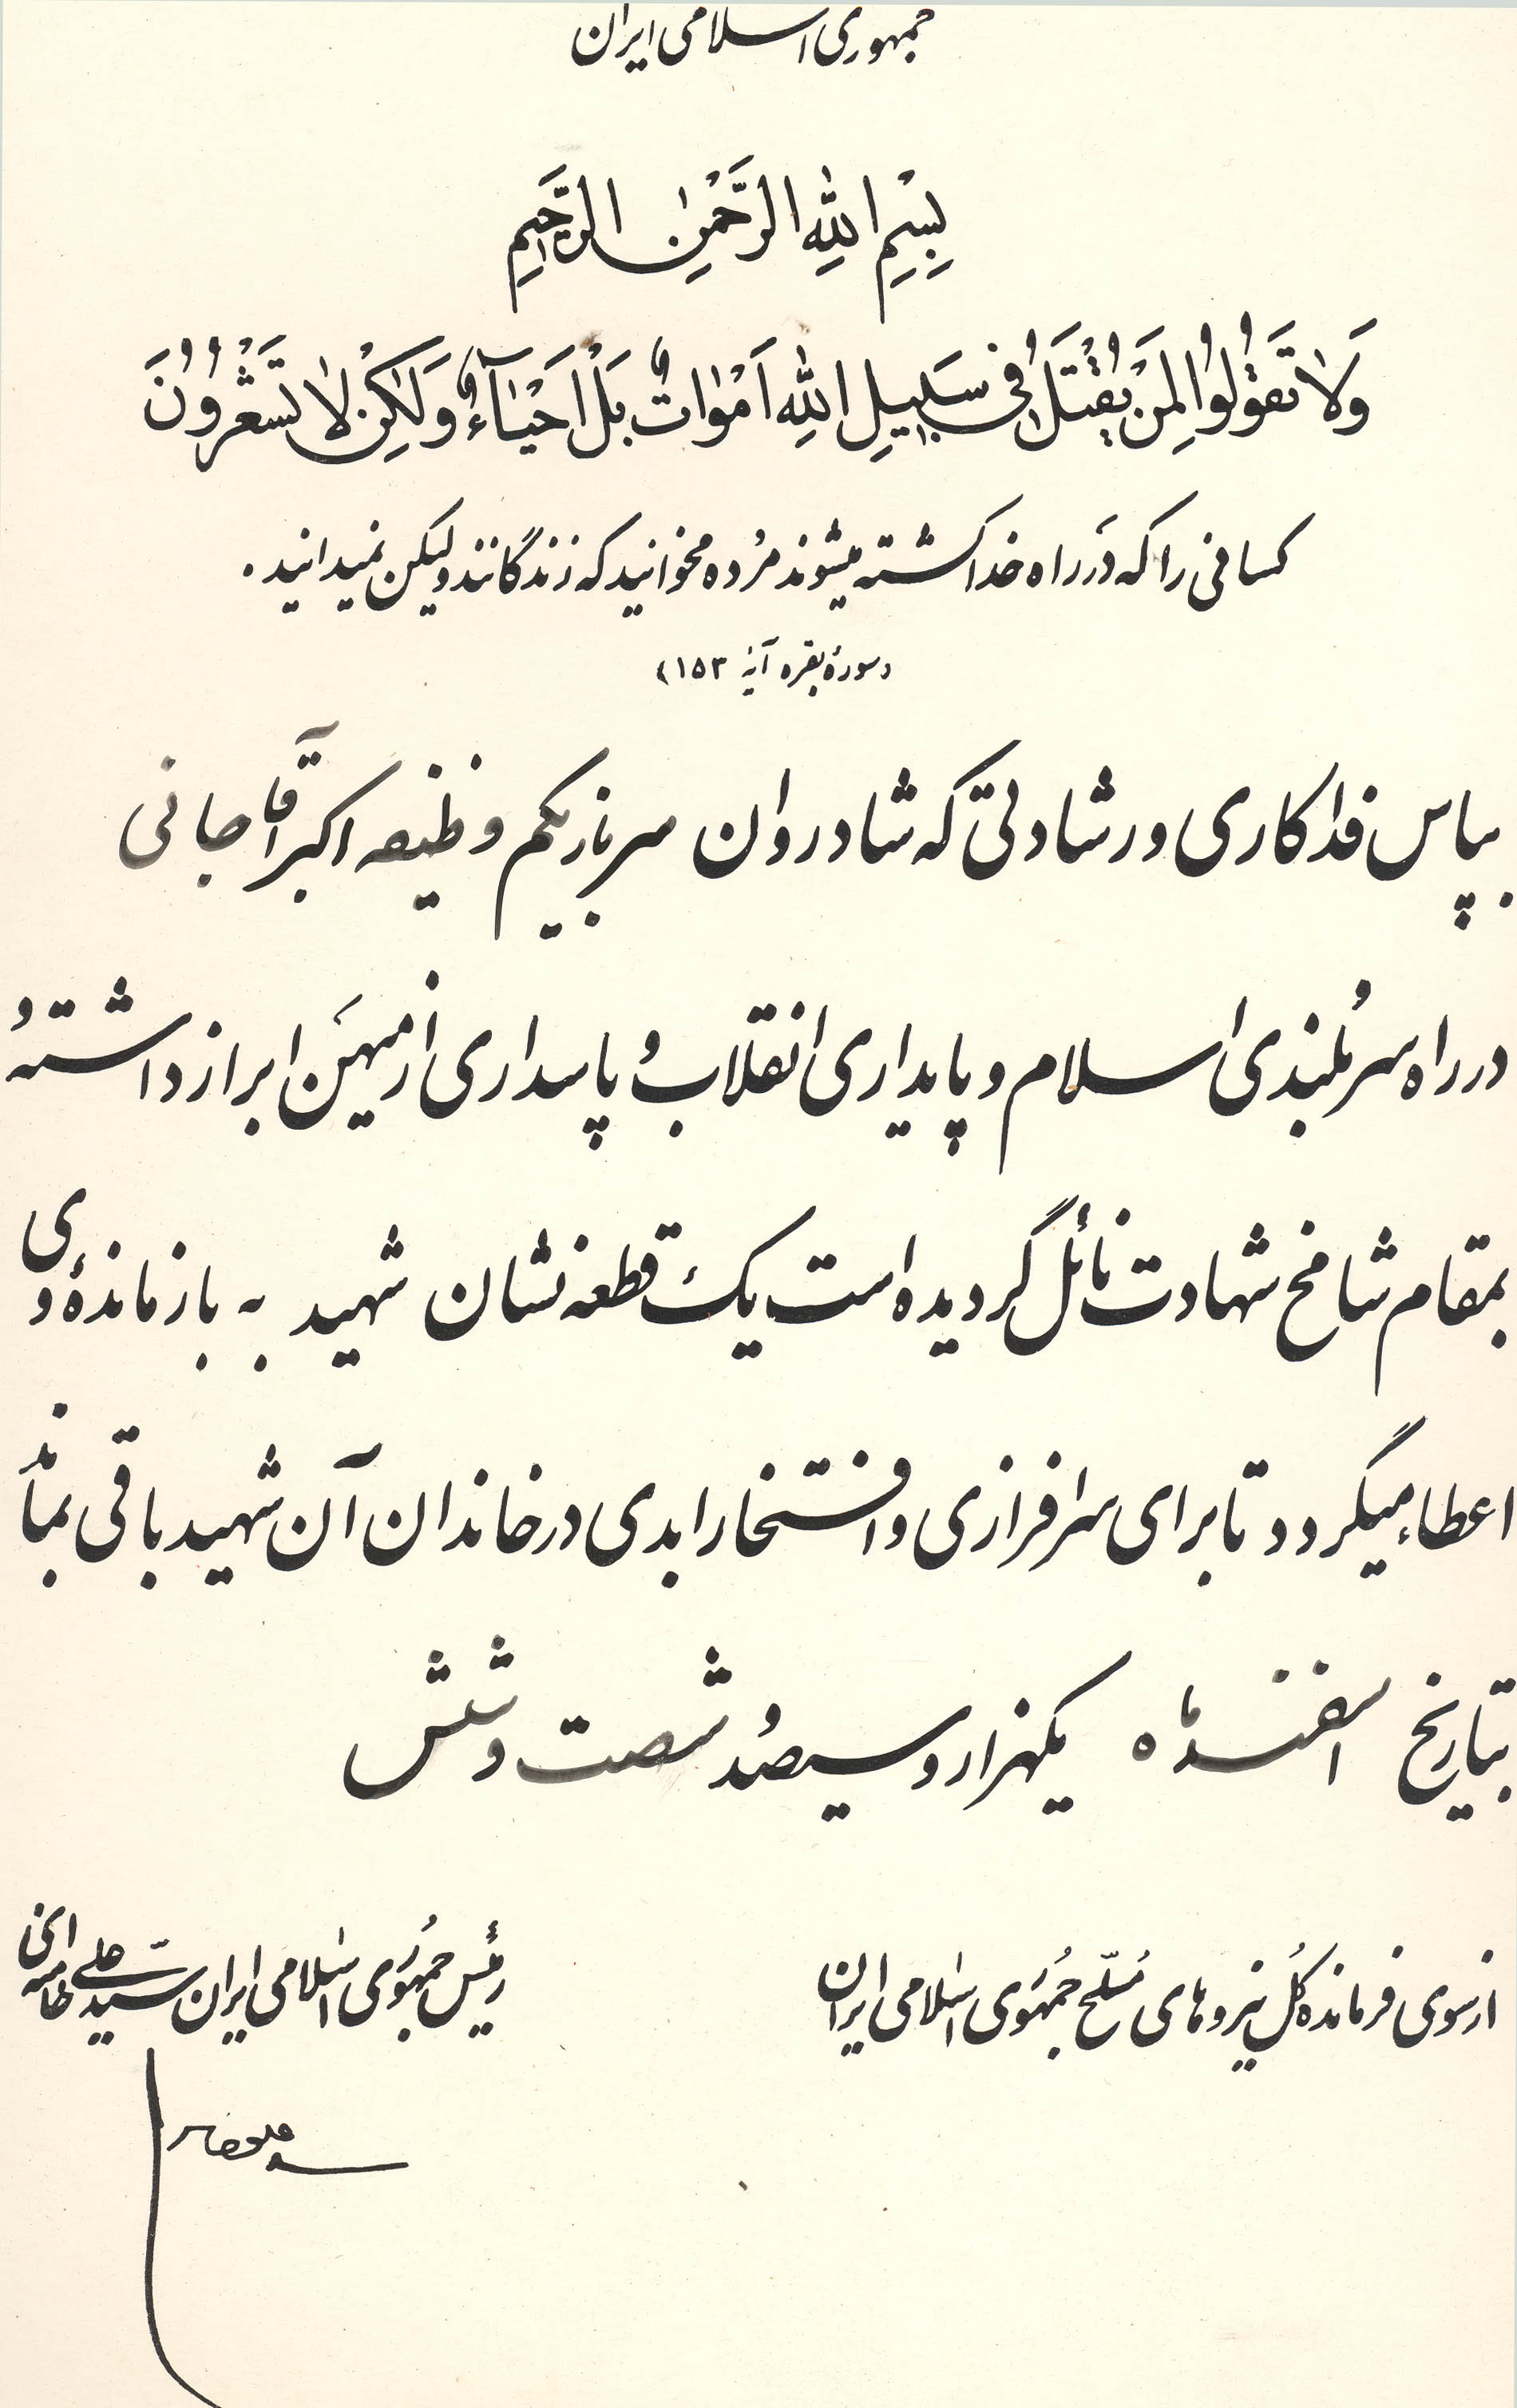 جمهوری اسلامی ایران
بِسْمِ اللهِ الرَّحْمٰنِ الرَّحیمِ
وَلاٰ تَقوُلوُا لِمَنْ یُقْتَلُ فی سَبیلِ اللهِ اَمْوٰاتٌ بَلْ اَحْیٰاۤءٌ وَلٰکِنْ لاٰ تَشْعُروُنَ
کسانی را که دَر راه خدا کشته میشوند مُرده مخوانید که زندگانند ولیکن نمیدانید .
(سورهٔ بقره آیهٔ ۱۵۳)
بپاس فداکاری و رشادتی که شادروان سرباز یکم وظیفه اکبر آقاجانی
در راه سرُبلندی اسلام و پایداری انقلاب وُ پاسداری از میهَن ابراز داشته وُ
بمقام شامخ شهادت نائل گردیده است یک قطعه نشان شهید به بازماندهٔ وی
اعطاء میگردد تا برای سرافرازی و افتخار ابدی در خاندان آن شهید باقی بماند
بتاریخ اسفند ماه یکهزار و سیصدُ شصت و شش
از سوی فرمانده کُل نیروهای مُسلّح جُمهُوری اسلامی ایران
رئیس جمهُوری اسلامی ایران سیّد علی خامنه‌ای